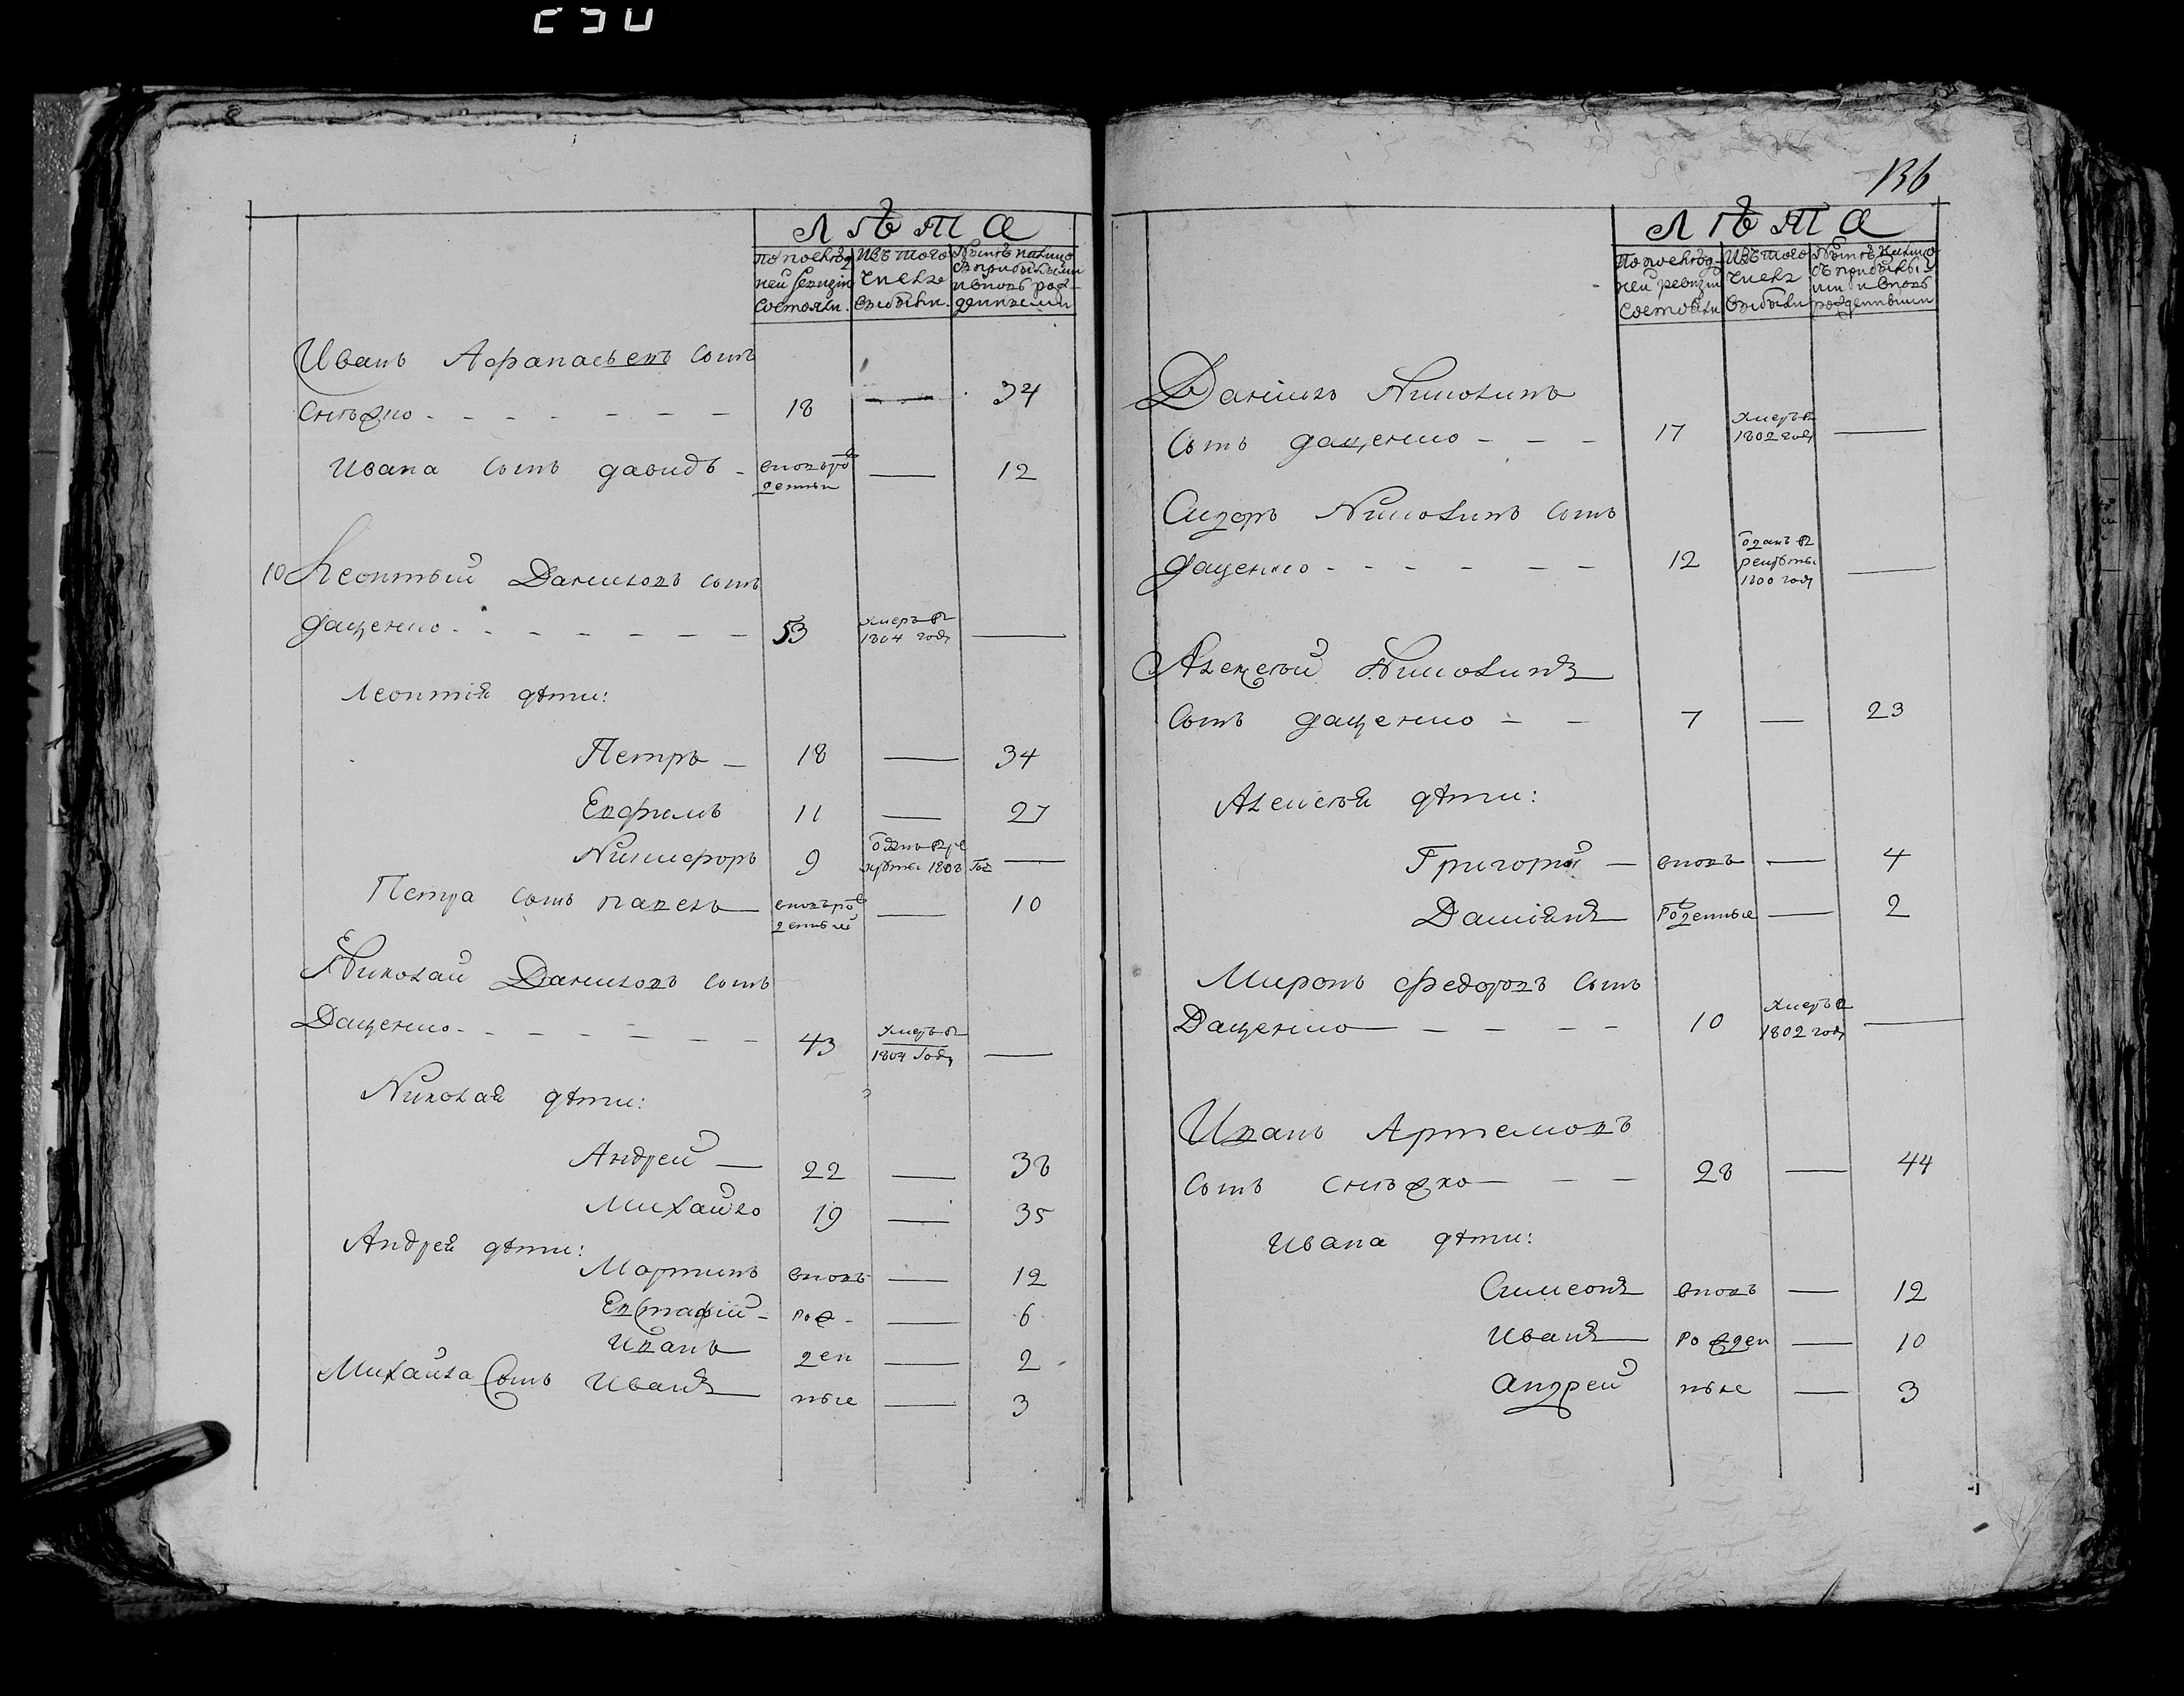 ЛѢТА
По послѣд
ней ревизіи
состояли.
Изъ того
числа
выбыли.
Нынѣ налицо
съ прибылыми
и вновь рож-
денными
Иванъ Афанасьевъ сынъ
Снѣжко - - - - - - - 18 — 34
Ивана сынъ давидъ - вновь рож
денный — 12
10 Леонтьий Даниловъ сынъ
даценко - - - - - - - 53 умеръ в
1804 году —
Леонтія дѣти:
Петръ — 18 — 34
Евфимъ 11 — 27
Никифоръ 9 отданъ в ре
круты 1808 год —
Петра сынъ павелъ — вновь рож
денный — 10
Николай Даниловъ сынъ
Даценко - - - - - - - 43 умеръ в
1804 году —
Николая дѣти:
Андрей — 22 — 38
Михайло 19 — 35
Андрея дѣти:
Мартинъ вновь — 12
Евстафій - рож - — 6
Иванъ ден — 2
Михайла сынъ Иванъ ные — 3
136
ЛѢТА
По послѣд-
ней ревизіи
состояли
Изъ того
числа
выбыли
Нынѣ налицо
съ прибылы
ми и вновь
рожденными
Данилъ Николинъ
сынъ даценко - - - 17 умеръ в
1802 году —
Сидоръ Николинъ сынъ
даценко - - - - - - 12 отданъ в
рекруты
1800 году —
Алексѣй Николинъ
сынъ даценко - - 7 — 23
Алексѣя дѣти:
Григорій — вновь — 4
Даміянъ рожденные — 2
Миронъ Федоровъ сынъ
Даценко - - - - - 10 умеръ в
1802 году —
Иванъ Артемовъ
сынъ снѣжко - - - 28 — 44
Ивана дѣти:
Симеонъ вновь — 12
Иванъ рожден — 10
Андрей ные — 3